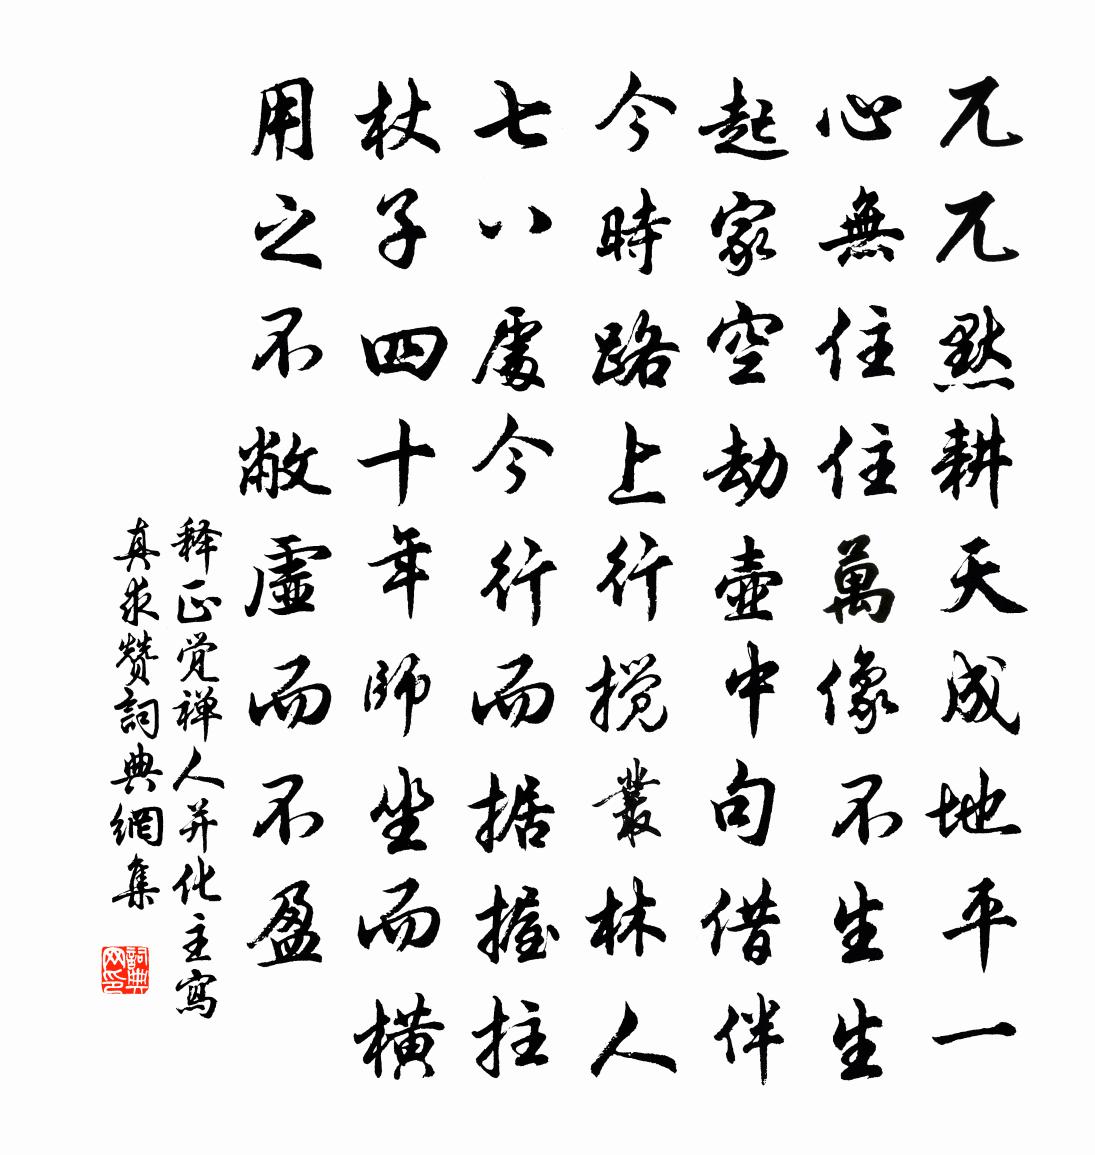 兀兀默耕天成地平一
心無住住萬像不生生
起家空劫壺中句借伴
今時路上行搅叢林人
七八處今行而据握拄
杖子四十年師坐而橫
用之不敝虛而不盈
释正觉禅人并化主寫
真求赞詞典網集
詞典
网印